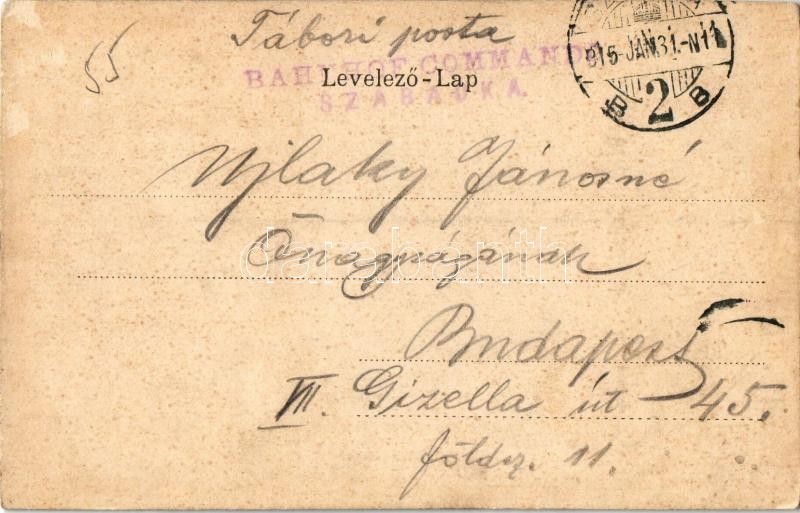 55
Tábori posta
BAHNHOF COMMANDO
SZABADKA
Levelező-Lap
915 JAN. 31. - N11
2
B
Ujlaky Jánosné
Önagyságának
Budapest
VII. Gizella út 45.
földsz. 11.
darabanth